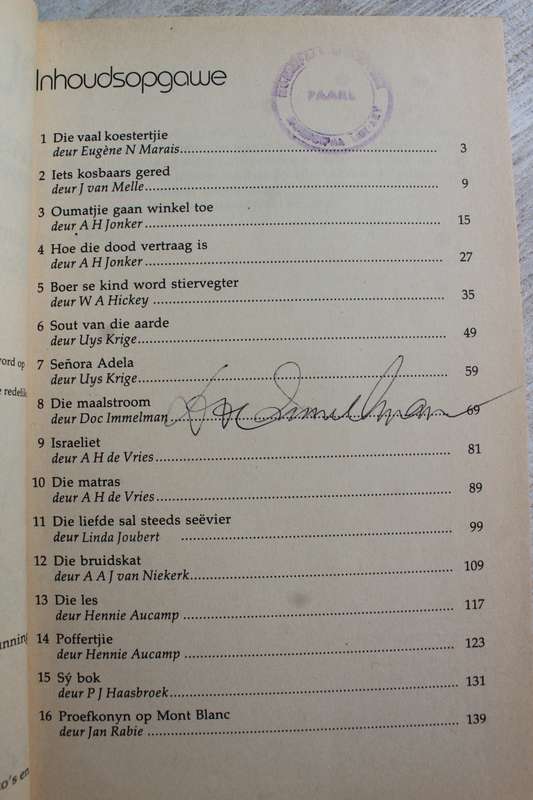 Inhoudsopgawe
PAARL
1 Die vaal koestertjie
deur Eugène N Marais 3
2 Iets kosbaars gered
deur J van Melle 9
3 Oumatjie gaan winkel toe
deur A H Jonker 15
4 Hoe die dood vertraag is
deur A H Jonker 27
5 Boer se kind word stiervegter
deur W A Hickey 35
6 Sout van die aarde
deur Uys Krige 49
7 Señora Adela
deur Uys Krige 59
8 Die maalstroom
deur Doc Immelman 69
Doc Immelman
9 Israeliet
deur A H de Vries 81
10 Die matras
deur A H de Vries 89
11 Die liefde sal steeds seëvier
deur Linda Joubert 99
12 Die bruidskat
deur A A J van Niekerk 109
13 Die les
deur Hennie Aucamp 117
14 Poffertjie
deur Hennie Aucamp 123
15 Sý bok
deur P J Haasbroek 131
16 Proefkonyn op Mont Blanc
deur Jan Rabie 139